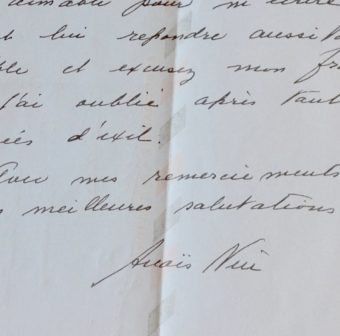 aimable pour m'écrire
lui repondre aussi
et excusez mon
J'ai oublié après tant
d'exil.
mes remerciements
meilleures salutations
Anaïs Nin